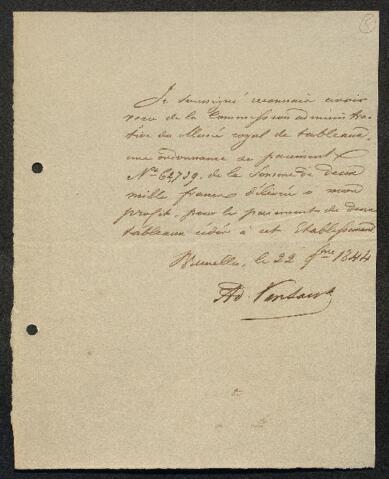 8
Je soussigné reconnais avoir
recu de la Commission administra-
tive du Musée royal de tableaux,
une ordonnance de paiement
Nº 62,739. de la Somme de deux
mille francs délivrée a mon
profit, pour le paiements de deux
tableaux cédés à cet Etablissement
Bruxelles, le 22 1844
Ad.